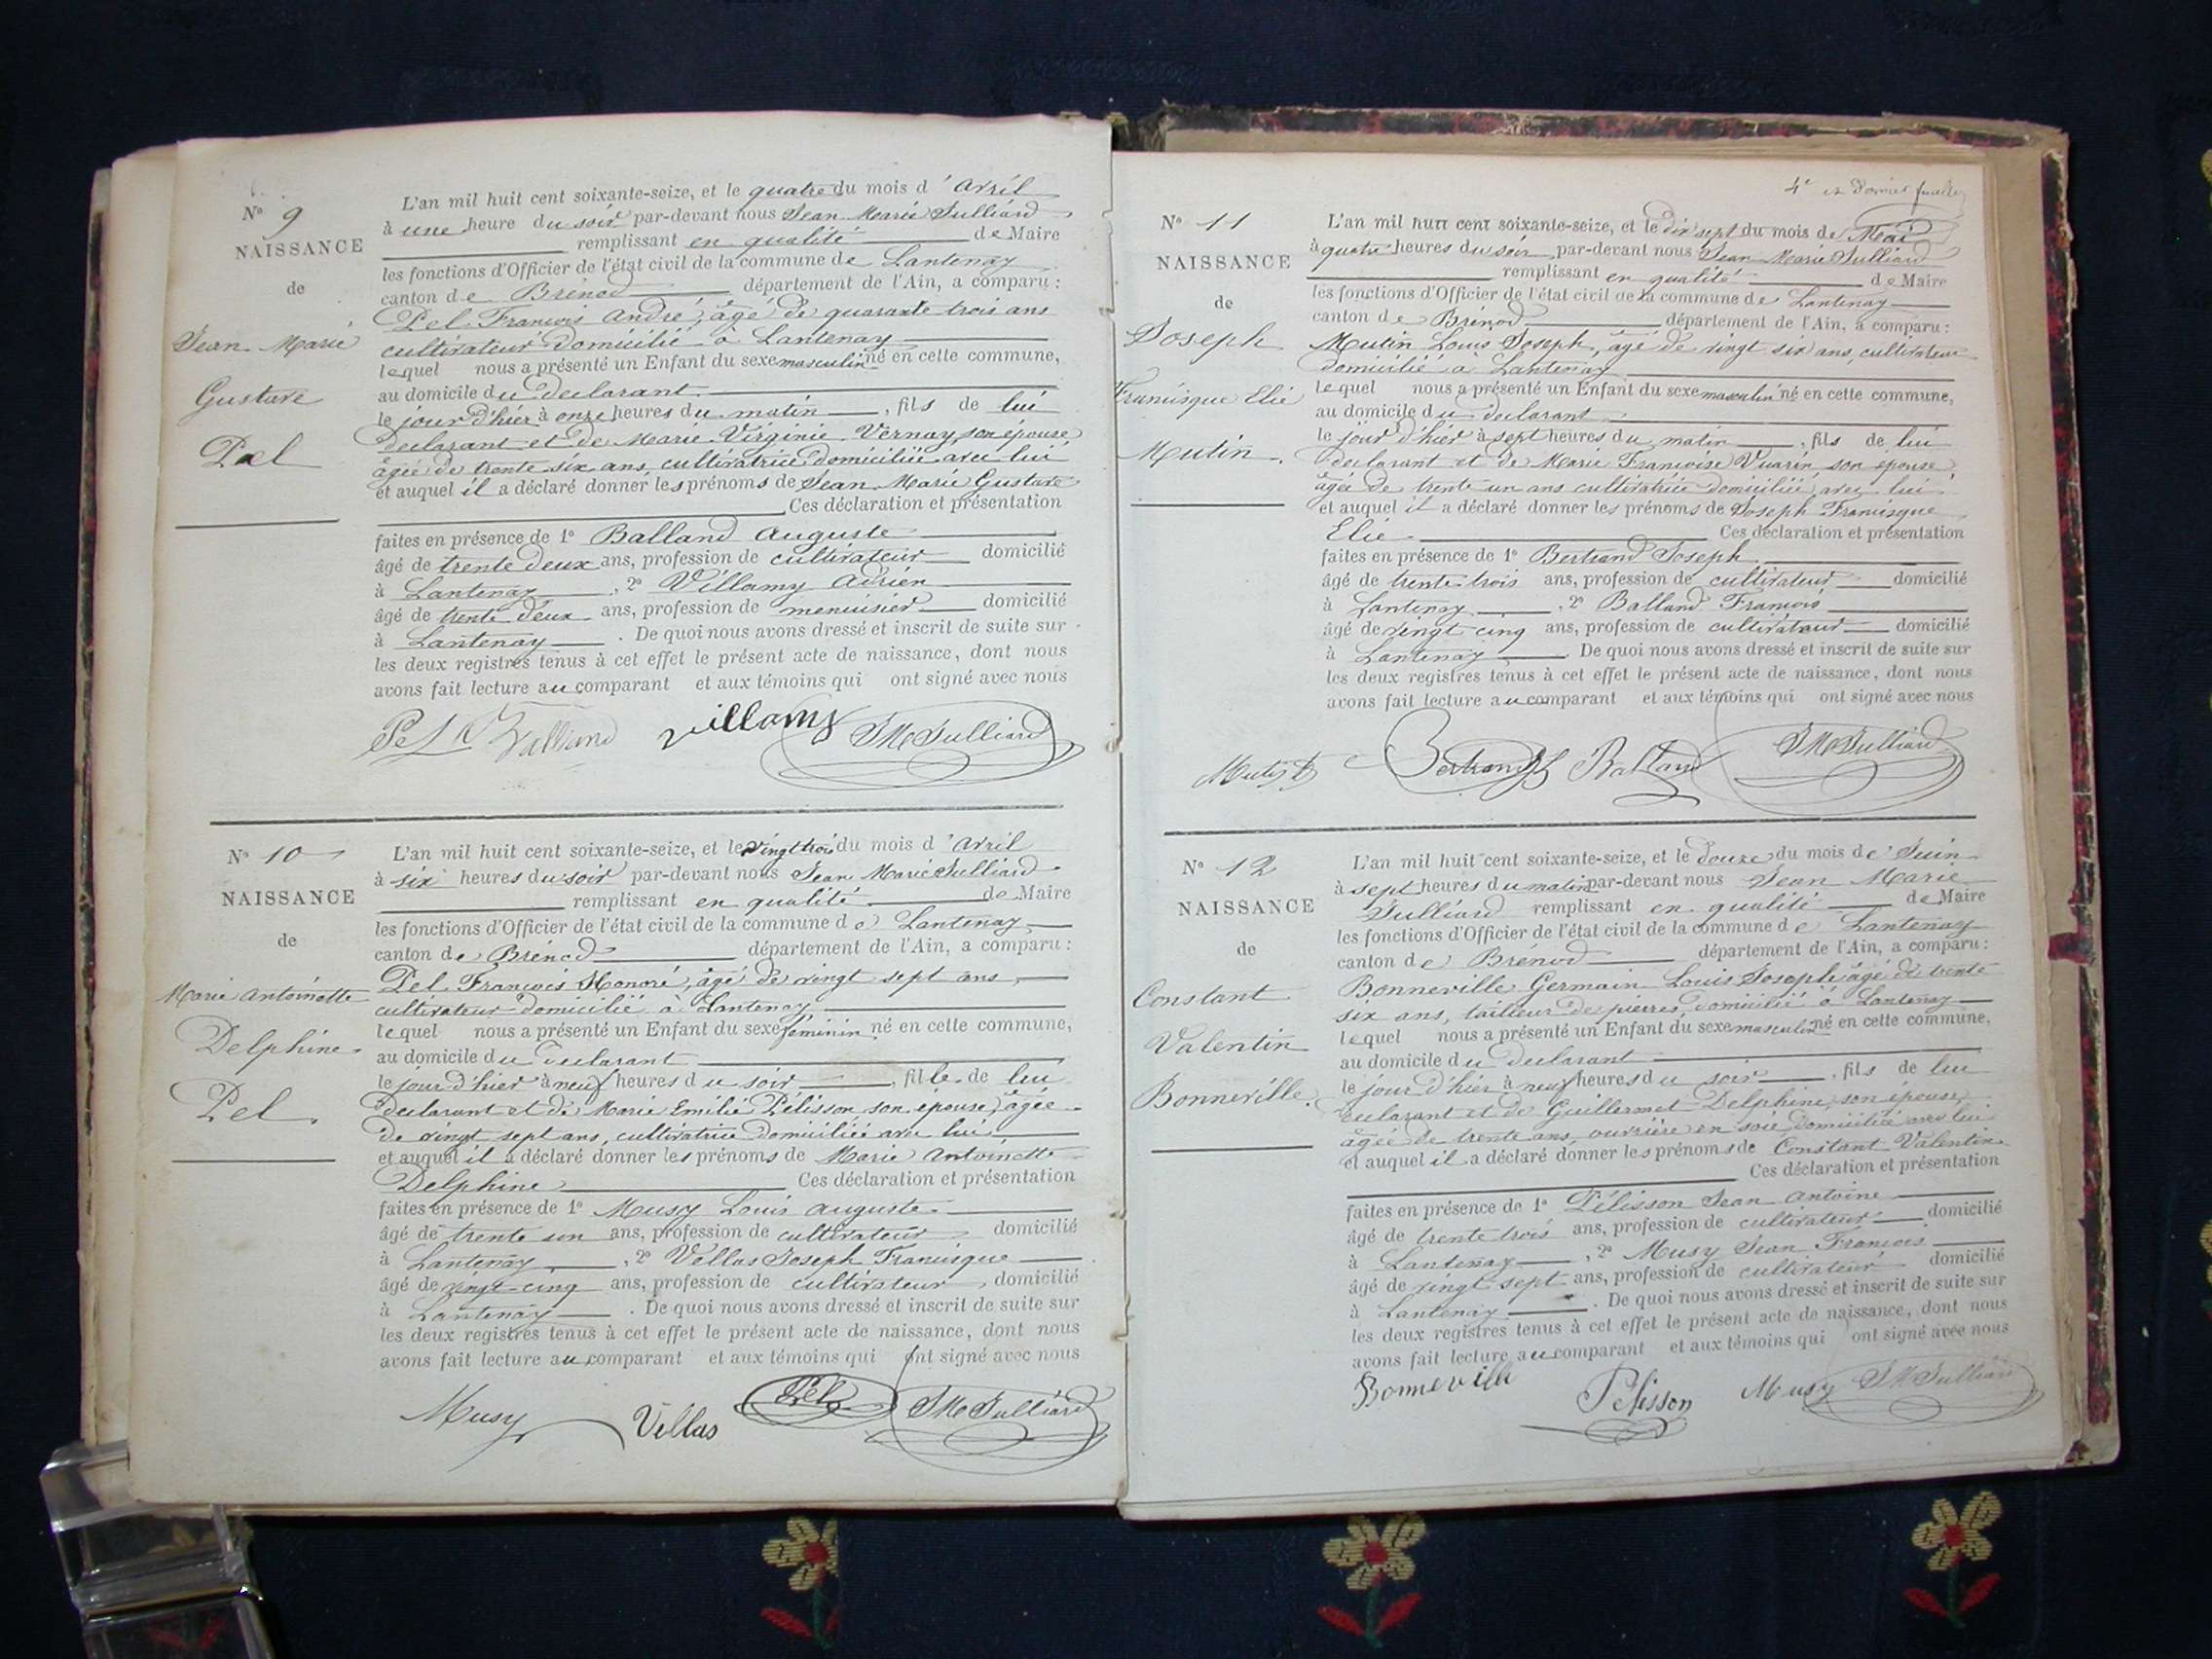 N° 9
NAISSANCE
de
Jean Marie
Gustave
Pel
L'an mil huit cent soixante-seize, et le quatre du mois d'Avril
à une heure du soir par-devant nous Jean Marie Julliard
remplissant en qualité de Maire
les fonctions d'Officier de l'état civil de la commune de Lantenay
canton de Brénod département de l'Ain, a comparu :
Pel François André, âgé de quarante trois ans
cultivateur domicilié à Lantenay
lequel nous a présenté un Enfant du sexe masculin né en cette commune,
au domicile du déclarant
le jour d'hier à onze heures du matin, fils de lui
déclarant et de Marie Virginie Vernay son épouse
âgée de trente six ans cultivatrice domiciliée avec lui
et auquel il a déclaré donner les prénoms de Jean Marie Gustave
Ces déclaration et présentation
faites en présence de 1° Balland Auguste
âgé de trente deux ans, profession de cultivateur domicilié
à Lantenay, 2° Villamy Adrien
âgé de trente deux ans, profession de menuisier domicilié
à Lantenay. De quoi nous avons dressé et inscrit de suite sur
les deux registres tenus à cet effet le présent acte de naissance, dont nous
avons fait lecture au comparant et aux témoins qui ont signé avec nous
Pel Balland Villamy JM Julliard
N° 10
NAISSANCE
de
Marie Antoinette
Delphine
Pel
L'an mil huit cent soixante-seize, et le vingt trois du mois d'Avril
à six heures du soir par-devant nous Jean Marie Julliard
remplissant en qualité de Maire
les fonctions d'Officier de l'état civil de la commune de Lantenay
canton de Brénod département de l'Ain, a comparu :
Pel François Honoré, âgé de vingt sept ans,
cultivateur domicilié à Lantenay
lequel nous a présenté un Enfant du sexe féminin né en cette commune,
au domicile du déclarant
le jour d'hier à neuf heures du soir, fille de lui
déclarant et de Marie Emilie Pélisson son épouse, âgée
de vingt sept ans, cultivatrice domiciliée avec lui
et auquel il a déclaré donner les prénoms de Marie Antoinette
Delphine Ces déclaration et présentation
faites en présence de 1° Musy Louis Auguste
âgé de trente un ans, profession de cultivateur domicilié
à Lantenay, 2° Vellas Joseph Francisque
âgé de vingt-cinq ans, profession de cultivateur, domicilié
à Lantenay. De quoi nous avons dressé et inscrit de suite sur
les deux registres tenus à cet effet le présent acte de naissance, dont nous
avons fait lecture au comparant et aux témoins qui ont signé avec nous
Musy Vellas Pel JM Julliard
4e et dernier feuillet
N° 11
NAISSANCE
de
Joseph
Francisque Elie
Mutin
L'an mil huit cent soixante-seize, et le dix sept du mois de Mai
à quatre heures du soir par-devant nous Jean Marie Julliard
remplissant en qualité de Maire
les fonctions d'Officier de l'état civil de la commune de Lantenay
canton de Brénod département de l'Ain, a comparu :
Mutin Louis Joseph, âgé de vingt six ans, cultivateur
domicilié à Lantenay
lequel nous a présenté un Enfant du sexe masculin né en cette commune,
au domicile du déclarant
le jour d'hier à sept heures du matin, fils de lui
déclarant et de Marie Françoise Vuarin son épouse
âgée de trente un ans cultivatrice domiciliée avec lui
et auquel il a déclaré donner les prénoms de Joseph Francisque
Elie Ces déclaration et présentation
faites en présence de 1° Bertrand Joseph
âgé de trente trois ans, profession de cultivateur domicilié
à Lantenay, 2° Balland François
âgé de vingt cinq ans, profession de cultivateur domicilié
à Lantenay. De quoi nous avons dressé et inscrit de suite sur
les deux registres tenus à cet effet le présent acte de naissance, dont nous
avons fait lecture au comparant et aux témoins qui ont signé avec nous
Bertrand Balland JM Julliard
N° 12
NAISSANCE
de
Constant
Valentin
Bonneville
L'an mil huit cent soixante-seize, et le douze du mois de Juin
à sept heures du matin par-devant nous Jean Marie
Julliard remplissant en qualité de Maire
les fonctions d'Officier de l'état civil de la commune de Lantenay
canton de Brénod département de l'Ain, a comparu :
Bonneville Germain Louis Joseph âgé de trente
six ans, tailleur de pierres, domicilié à Lantenay
lequel nous a présenté un Enfant du sexe masculin né en cette commune,
au domicile du déclarant
le jour d'hier à neuf heures du soir, fils de lui
déclarant et de Guillermet Delphine, son épouse,
âgée de trente ans, ouvrière en soie, domiciliée avec lui
et auquel il a déclaré donner les prénoms de Constant Valentin
Ces déclaration et présentation
faites en présence de 1° Pélisson Jean Antoine
âgé de trente trois ans, profession de cultivateur domicilié
à Lantenay, 2° Musy Jean François
âgé de vingt sept ans, profession de cultivateur domicilié
à Lantenay. De quoi nous avons dressé et inscrit de suite sur
les deux registres tenus à cet effet le présent acte de naissance, dont nous
avons fait lecture au comparant et aux témoins qui ont signé avec nous
Bonneville Pelisson Musy JM Julliard